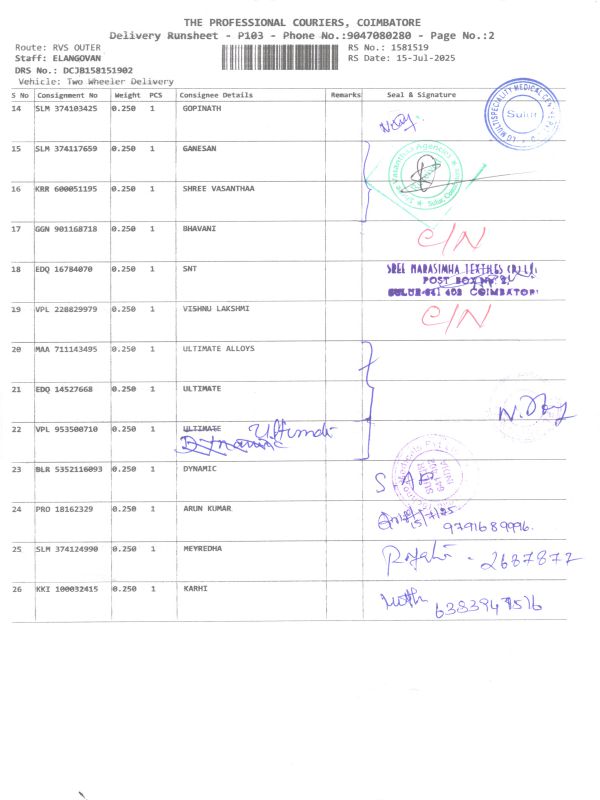 THE PROFESSIONAL COURIERS, COIMBATORE
Delivery Runsheet - P103 - Phone No.:9047080280 - Page No.:2
Route: RVS OUTER RS No.: 1581519
Staff: ELANGOVAN RS Date: 15-Jul-2025
DRS No.: DCJB158151902
Vehicle: Two Wheeler Delivery
S No Consignment No Weight PCS Consignee Details Remarks Seal & Signature
14 SLM 374103425 0.250 1 GOPINATH
Sulur
15 SLM 374117659 0.250 1 GANESAN
16 KRR 600051195 0.250 1 SHREE VASANTHAA
17 GGN 901168718 0.250 1 BHAVANI C/N
18 EDQ 16784070 0.250 1 SNT SREE NARASIMHA TEXTILES (P) LTD.
POST BOX
SULUR-641 402 COIMBATORE
19 VPL 228829979 0.250 1 VISHNU LAKSHMI C/N
20 MAA 711143495 0.250 1 ULTIMATE ALLOYS
21 EDQ 14527668 0.250 1 ULTIMATE
22 VPL 953500710 0.250 1 ULTIMATE
23 BLR 5352116093 0.250 1 DYNAMIC
24 PRO 18162329 0.250 1 ARUN KUMAR
9791689996.
25 SLM 374124990 0.250 1 MEYREDHA
2687877
26 KKI 100032415 0.250 1 KARHI